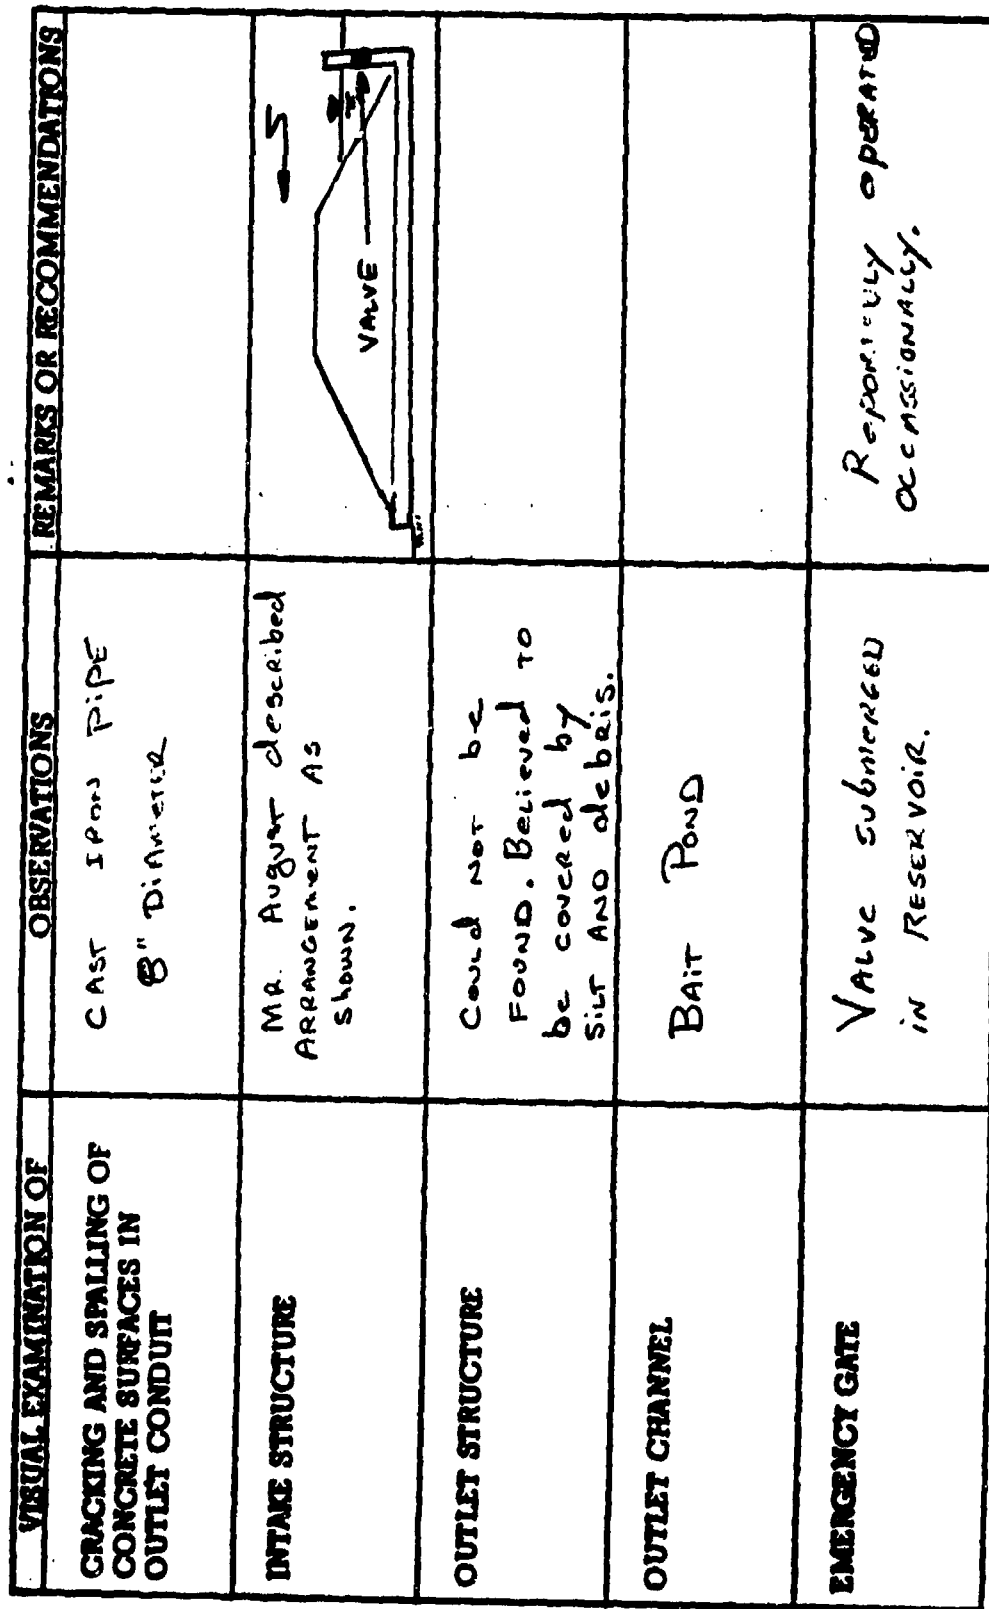 VISUAL EXAMINATION OF
OBSERVATIONS
REMARKS OR RECOMMENDATIONS
CRACKING AND SPALLING OF
CONCRETE SURFACES IN
OUTLET CONDUIT
CAST IRON PIPE
8" DIAMETER
INTAKE STRUCTURE
MR. August described
ARRANGEMENT AS
shown.
VALVE
OUTLET STRUCTURE
Could NOT be
FOUND. Believed TO
be covered by
SILT AND debris.
OUTLET CHANNEL
BAIT POND
EMERGENCY GATE
VALVE SUBMERGED
IN RESERVOIR.
operated
OCCASSIONALLY.